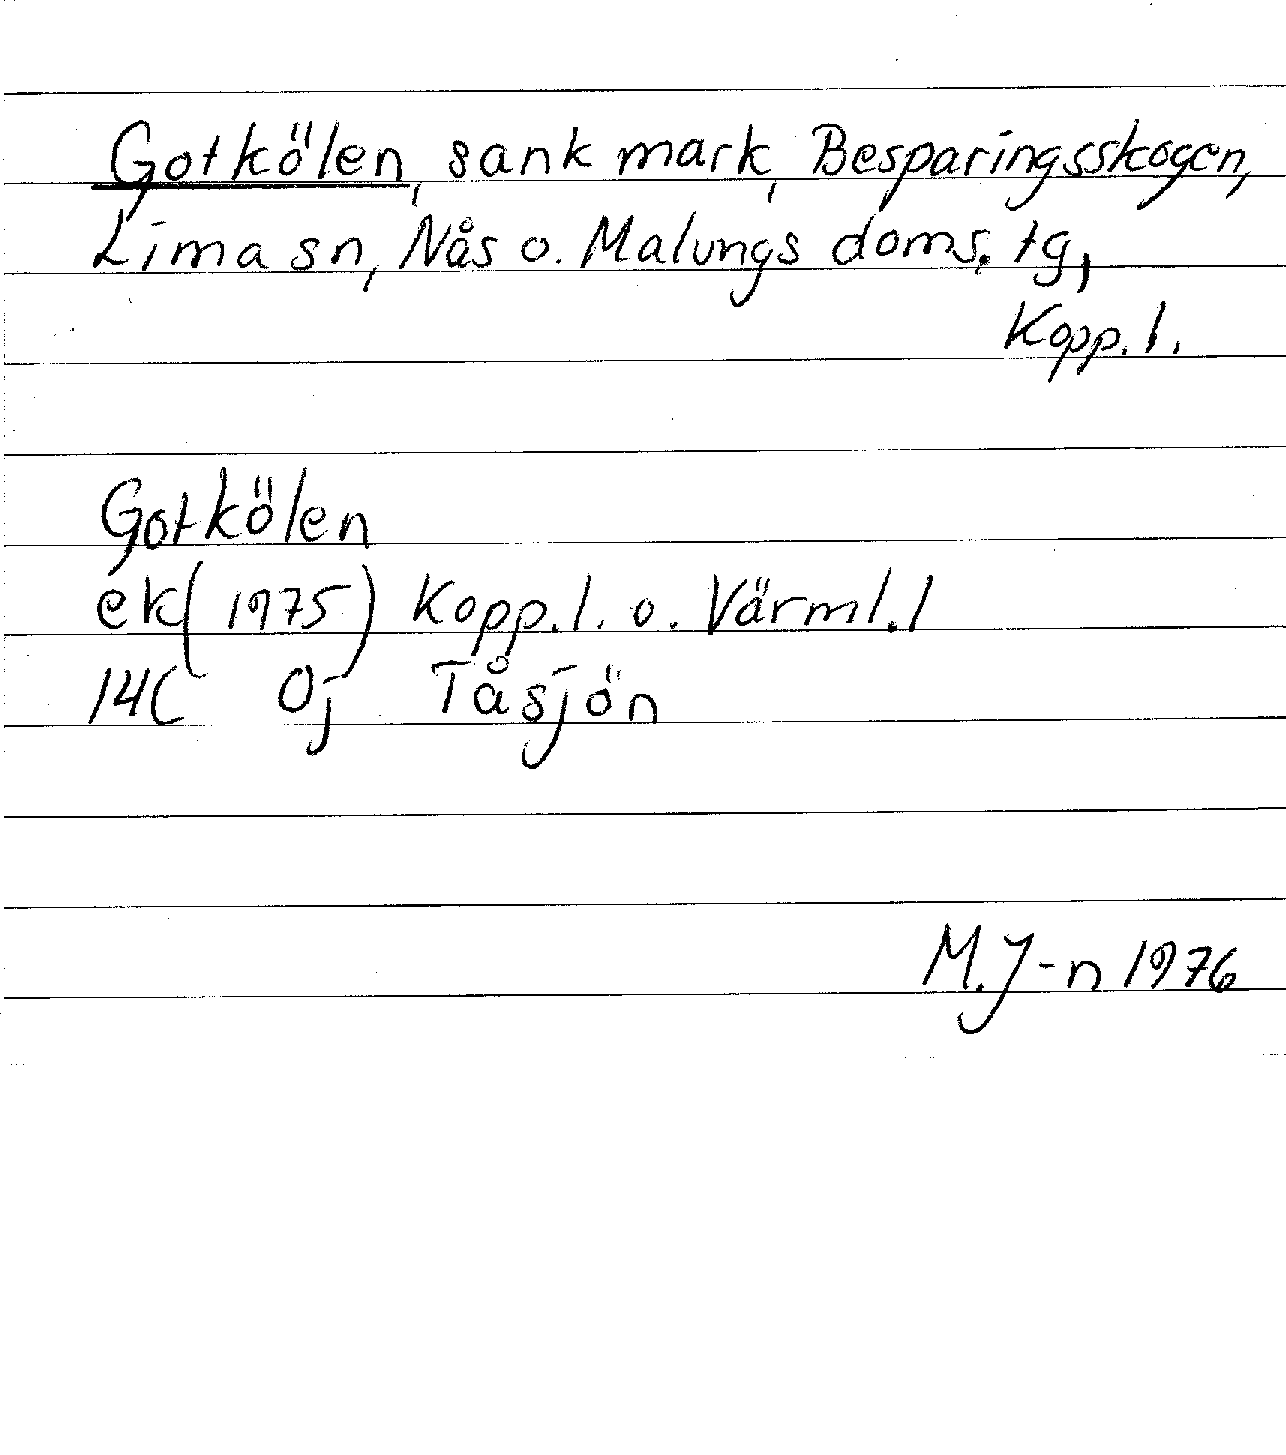 Gotkölen, sank mark, Besparingsskogen,
Lima sn, Nås o. Malungs doms. tg,
Kopp. l.
Gotkölen
ek (1975) Kopp. l. o. Värml. l
14C 0j Tåsjön
M. J-n 1976